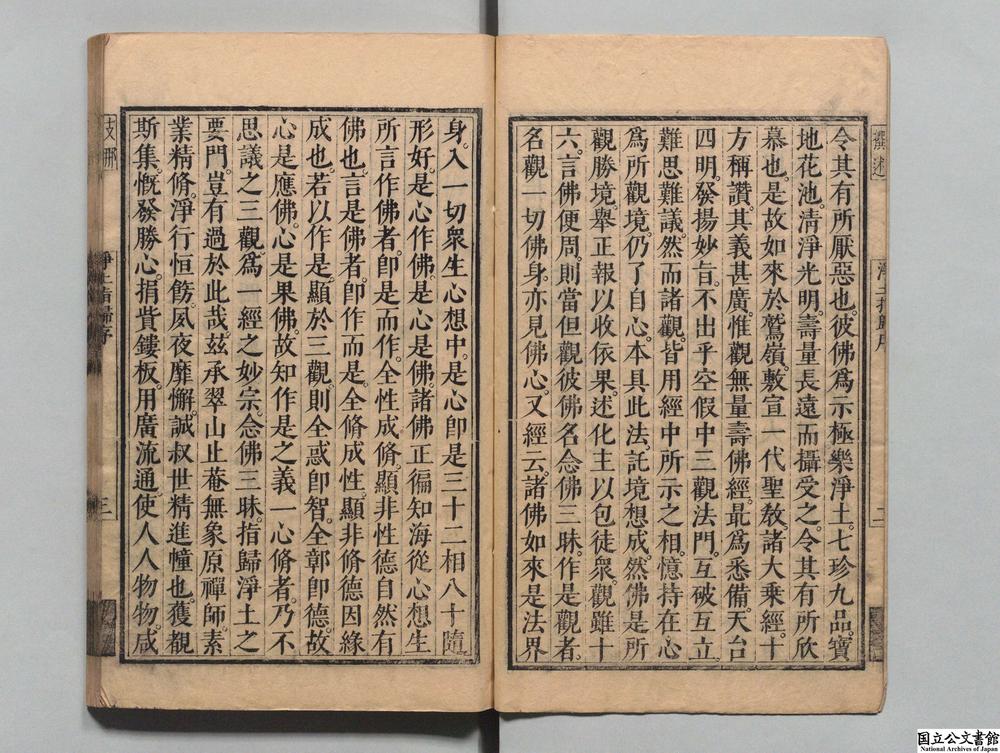 令其有所厭惡也。彼佛爲示極樂淨土。七珍九品。寶
地花池。清淨光明。壽量長遠而攝受之。令其有所欣
慕也。是故如來於鷲嶺。敷宣一代聖教。諸大乘經。十
方稱讚。其義甚廣。惟觀無量壽佛經。最爲悉備。天台
四明。發揚妙旨。不出乎空假中三觀法門。互破互立
難思難議。然而諸觀。皆用經中所示之相。憶持在心
爲所觀境。仍了自心。本具此法。託境想成。然佛是所
觀勝境。舉正報以收依果。述化主以包徒衆。觀雖十
六。言佛便周。則當但觀彼佛名念佛三昧。作是觀者。
名觀一切佛身亦見佛心。又經云。諸佛如來是法界
身。入一切衆生心想中。是心卽是三十二相八十隨
形好。是心作佛。是心是佛。諸佛正徧知海從心想生
所言作佛者。卽是而作。全性成脩。顯非性德自然有
佛也。言是佛者。卽作而是。全脩成性。顯非修德因緣
成也。若以作是。顯於三觀。則全惑卽智。全鄣卽德。故
心是應佛。心是果佛。故知作是之義一心脩者。乃不
思議之三觀。爲一經之妙宗。念佛三昧。指歸淨土之
要門。豈有過於此哉。玆承翠山止菴無象原禪師。素
業精脩。淨行恒飭。夙夜靡懈。誠叔世精進幢也。獲覩
斯集。慨發勝心。捐貲鏤板。用廣流通。使人人物物。咸
撰述
二
支那
淨土指歸序
三
国立公文書館
National Archives of Japan